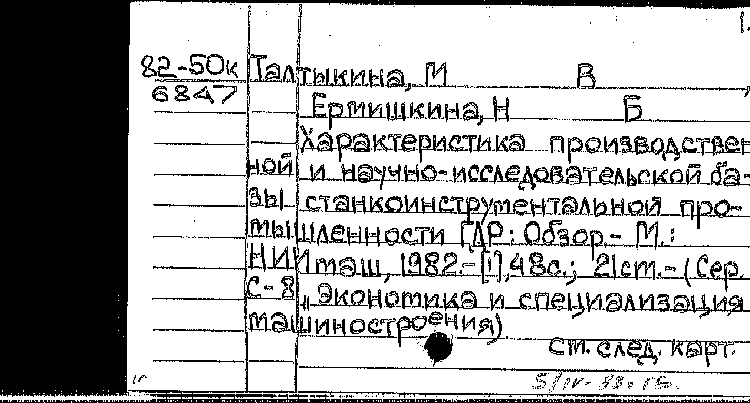 1.
82-50к Талтыкина, М В
6847 Ермишкина, Н Б
Характеристика производствен
ной и научно-исследовательской ба-
зы станкоинструментальной про-
мышленности ГДР: Обзор.- М.:
НИИмаш, 1982.-[1], 48с.; 21см.-(Сер.
С-8 „Экономика и специализация
машиностроения)
см. след. карт.